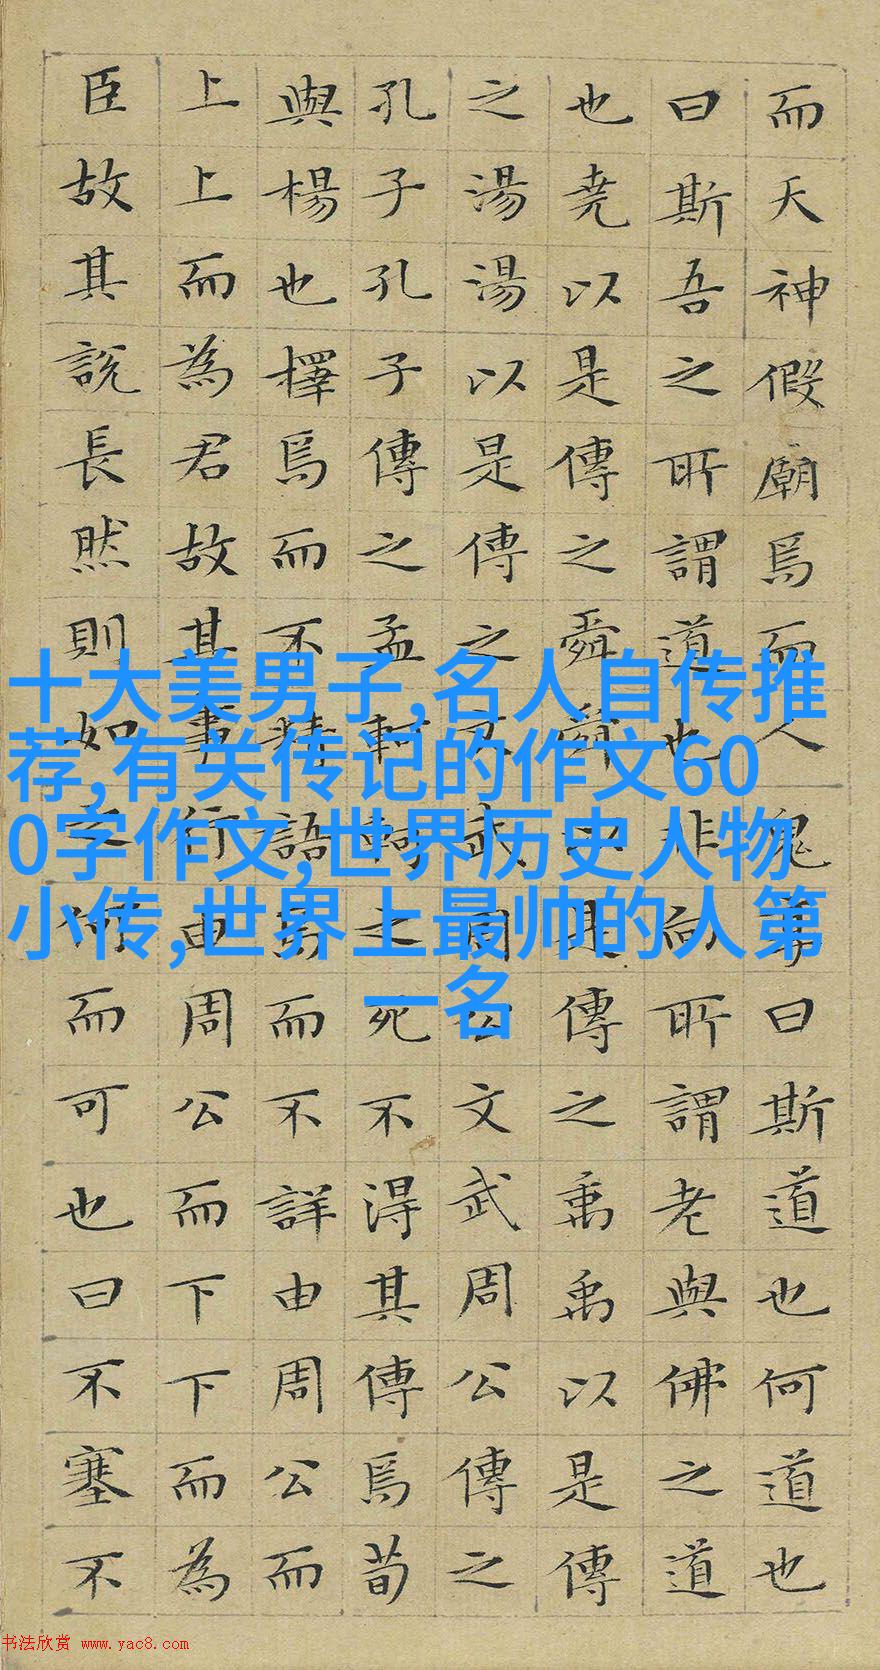 而天神假廟焉而人鬼享曰斯道也何道也
曰斯吾之所謂道也非向所謂老與佛之道
也堯以是傳之舜舜以是傳之禹禹以是傳
之湯湯以是傳之文武周公文武周公傳之
孔子孔子傳之孟軻軻之死不得其傳焉荀
與楊也擇焉而不精語焉而不詳由周公而
上上而為君故其事行由周公而下下而為
臣故其說長然則如之何而可也曰不塞不
十大美男子,名人自传推
荐,有关传记的作文60
0字作文,世界历史人物
小传,世界上最帅的人第
一名
书法欣赏 www.yac8.com